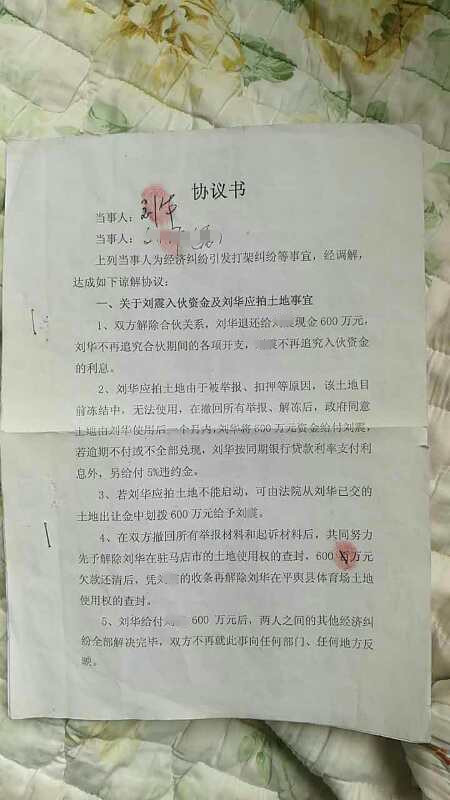 协议书
当事人：刘华
当事人：
上列当事人为经济纠纷引发打架纠纷等事宜，经调解，
达成如下谅解协议：
一、关于刘震入伙资金及刘华应拍土地事宜
1、双方解除合伙关系，刘华退还给刘现金600万元，
刘华不再追究合伙期间的各项开支，不再追究入伙资金
的利息。
2、刘华应拍土地由于被举报、扣押等原因，该土地目
前冻结中，无法使用，在撤回所有举报、解冻后，政府同意
土地由刘华使用后一个月内，刘华将600万元资金给付刘震，
若逾期不付或不全部兑现，刘华按同期银行贷款利率支付利
息外，另给付5%违约金。
3、若刘华应拍土地不能启动，可由法院从刘华已交的
土地出让金中划拨600万元给予刘。
4、在双方撤回所有举报材料和起诉材料后，共同努力
先予解除刘华在驻马店市的土地使用权的查封，600万元
欠款还清后，凭刘的收条再解除刘华在平舆县体育场土地
使用权的查封。
5、刘华给付刘600万元后，两人之间的其他经济纠
纷全部解决完毕，双方不再就此事向任何部门、任何地方反
映。